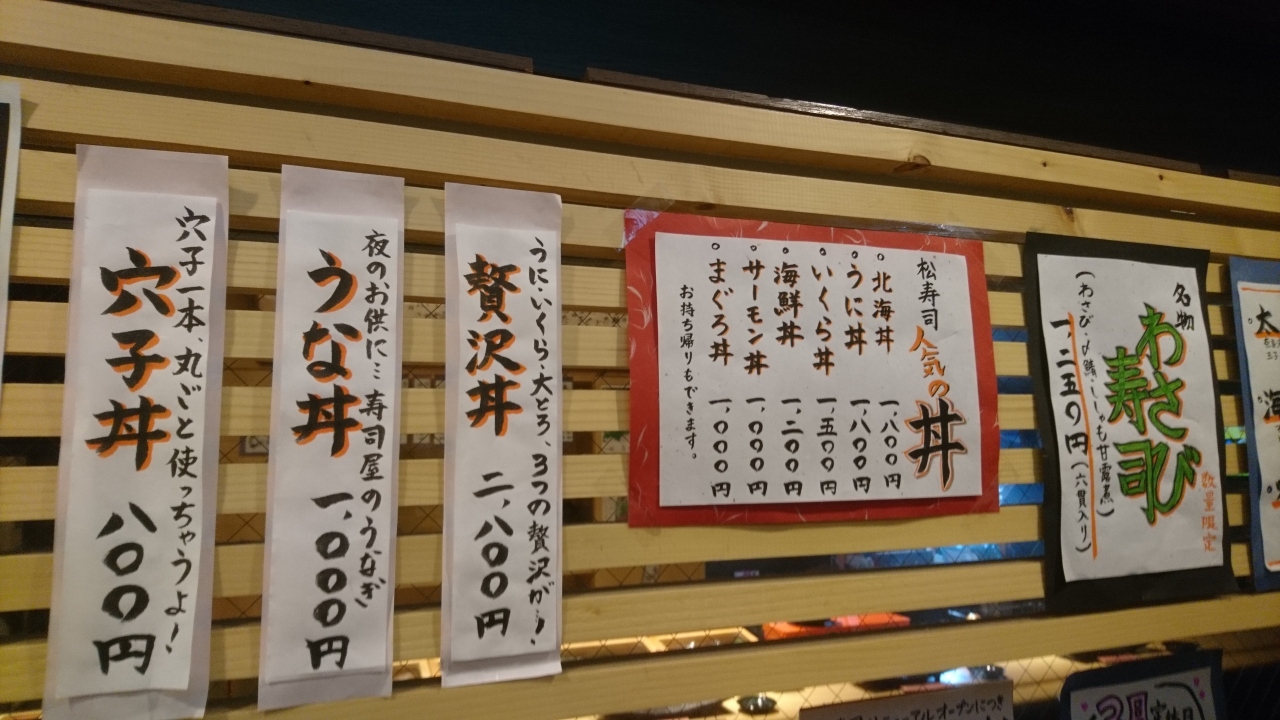 穴子一本、丸ごと使っちゃうよ!
穴子丼 八〇〇円
夜のお供に…寿司屋のうなぎ
うな丼 一、〇〇〇円
うに、いくら、大とろ、3つの贅沢が…!
贅沢丼 二、八〇〇円
松寿司 人気の丼
。北海丼 一、八〇〇円
。うに丼 一、八〇〇円
。いくら丼 一、五〇〇円
。海鮮丼 一、二〇〇円
。サーモン丼 一、〇〇〇円
。まぐろ丼 一、〇〇〇円
お持ち帰りもできます。
数量限定
名物
わさび
寿司
(わさび・〆鯖・ししゃも甘露煮)
一、二五〇円(六貫入り)
大
海
オープンにつき